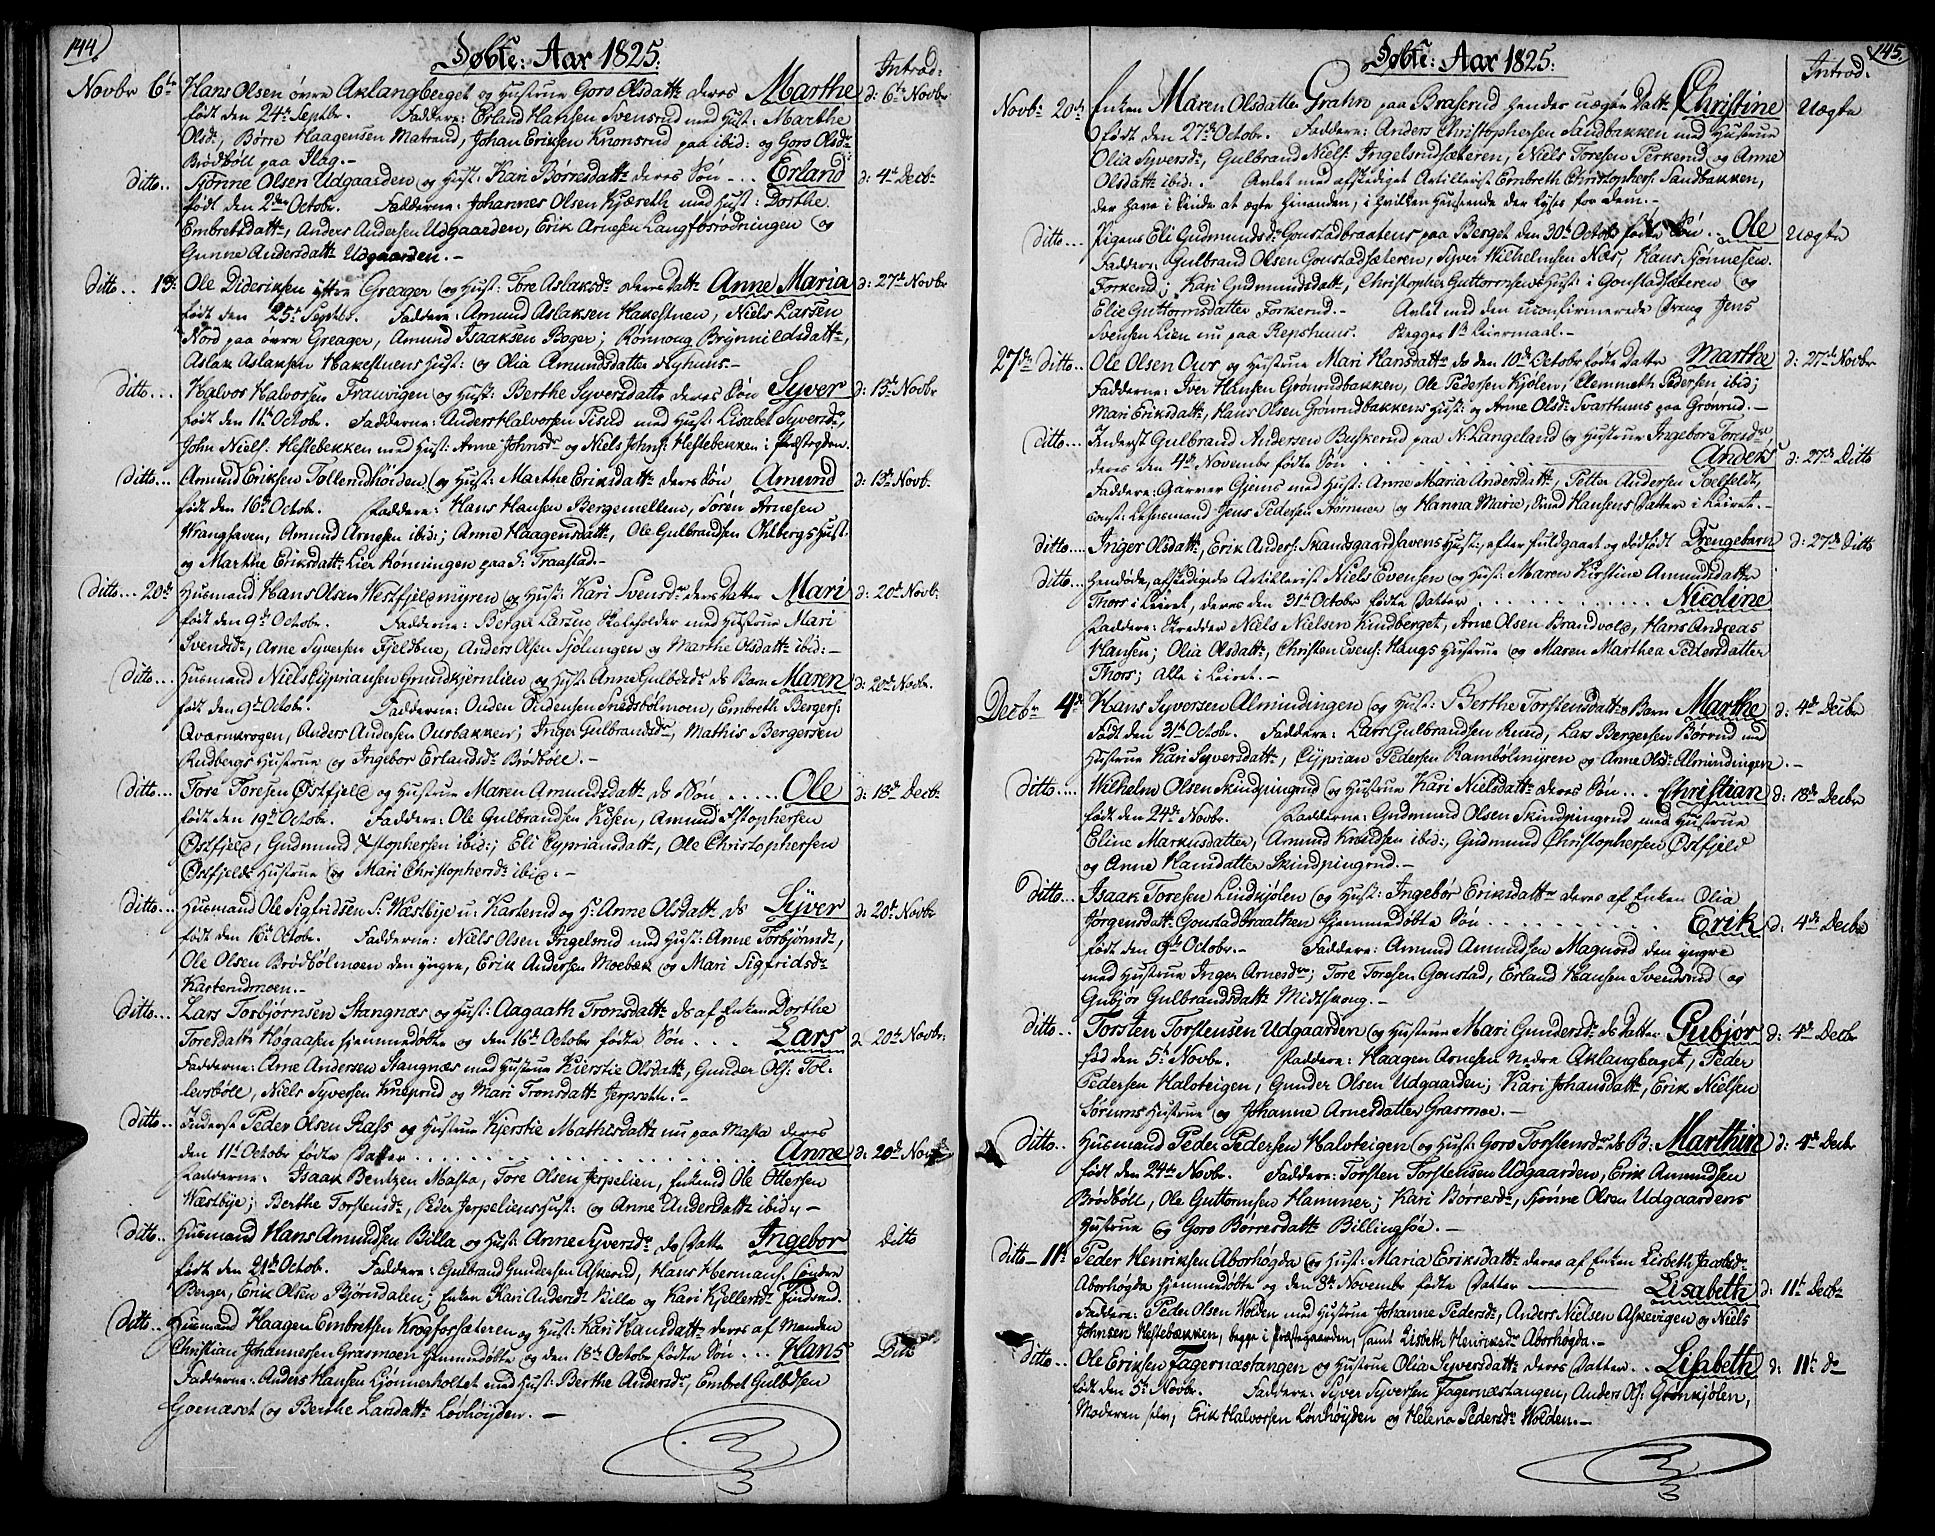 144
Døbte: Aar 1825.
Introd:
Novbr 6te Hans Olsen øvre Aklangberget og Hustrue Goro Olsdattr deres Marthe d: 6te Novbr
født den 24de Septbr. Faddere: Erland Hansen Svensrud med Hust: Marthe
Olsdr, Børre Haagensen Matrand, Johan Eriksen Knonsrud paa ibid: og Goro Olsdr
Brødbøll paa Flag.-
Ditto.. Sjønne Olsen Udgaarden og Hust: Kari Børresdattr deres Søn - .. Erland d: 4de Decbr
født den 2den Octobr. Fadderne: Johannes Olsen Kjæreth med Hust: Dorthe
Embretsdattr, Anders Andersen Udgaarden, Erik Arnesen Langfosrødningen og
Gunne Andersdattr Udgaarden.-
Ditto.. 13. Ole Dideriksen Greager og Hust: Tore Aslaksdr deres Dattr Anne Maria d: 27de Novbr
født den 25de Septbr. Faddere: Amund Aslaksen Hakestuen, Niels Larsen
Nord paa øvre Greager, Amund Isaaksen Boger; Rønnoug Brynnildsdattr,
Aslak Aslaksen Hakestuens Hust: og Olia Amundsdatter Nyhuus.-
Ditto... Halvor Halvorsen Frauvigen og Hust: Berthe Syversdattr deres Søn Syver d: 13de Novbr
født den 11te Octobr. Faddere: Anders Halvorsen Tisud med Hust: Lisabet Syversdr,
John Niels: Hestebekken med Hust: Anne Johnsdr og Niels Johns: Hestebekken i Præstegden.
Ditto... Amund Eriksen Tollendhoiden og Hust: Marthe Eriksdattr deres Søn Amund d: 13de Novb.
født den 16de Octobr. Faddere: Hans Hansen Bergemellem, Søren Arnesen
Wranghaven, Amund Arnesen ibid:; Anne Haagensdattr, Ole Gulbrandsen Ohlbergs Hust:
og Marthe Eriksdattr Lier Rønningen paa S: Traastad.-
Ditto... 20de Husmand Hans Olsen Westfjeldmyren og Hust: Kari Svensdr deres Datter Mari d: 20de Novb:
født den 9de Octobr. Fadderne: Berger Larsen Skaleholder med Hustrue Mari
Svendsdr, Arne Syversen Fjeldbue, Anders Olsen Sjølungen og Marthe Olsdattr ibid:-
Ditto... Husmand Niels Cyprianusen Grundkjernlien og Hust: Anne Gulbdsdr ds Barn Maren d: 20de Novbr.
født den 9de Octobr. Fadderne: Ouden Oudensen Snedsbølmoen, Embreth Bergers:
Qvarnkrogen, Anders Andersen Ourbakken; Inger Gulbrandsdr, Mathis Bergersen
Rudbergs Hustrue og Ingebor Erlandsdr Brødbøll.-
Ditto... Tore Toresen Østfjeld og Hustrue Maren Amundsdattr ds Søn ..... Ole d: 18de Decbr
født den 19de Octobr. Faddere: Ole Gulbrandsen Kiisen, Amund Xstophersen
Østfjeld, Gudmund Xstophersen ibid:; Eli Cypriansdattr, Ole Christophersen
Østfjelds Hustrue og Mari Christophersdr ibid.-
Ditto... Husmand Ole Sigfridsen S: Wæstbye u: Karterud og H: Anne Olsdattr ds Syver d: 20de Novbr
født den 16de Octobr. Fadderne: Niels Olsen Ingelsrud med Hust: Anne Torbjørnsdr,
Ole Olsen Brødbølmoen den yngre, Erik Andersen Moebæk og Mari Sigfridsdr
Karterudmoen.-
Ditto... Lars Torbjørnsen Stangnæs og Hust: Aagaath Tronsdattr ds af Enken Dorthe
Toresdattr Høgaasen hjemmedøbte og den 16de Octobr fødte Søn ... Lars d: 20de Novbr:
Fadderne: Arne Andersen Stangnæs med Hustrue Kierstie Olsdattr, Gunder Ols: Tol-
levsbøll, Niels Syversen Kneprud og Mari Tronsdattr Jerpseth.-
Ditto... Inderst Peder Olsen Rass og Hustrue Kjerstie Mathisdattr nu paa Masta deres
den 11te Octobr fødte Datter .................... Anne d: 20de Novb
Fadderne: Isaak Bentzen Masta, Tore Olsen Jerpelien, Enkemd Ole Ottersen
Wæstbye; Berthe Torstensdr, Peder Jerpeliens Hust: og Anne Andersdattr ibid.-
Ditto.. Husmand Hans Amundsen Billa og Hust: Anne Syversdr ds Dattr Ingebor Ditto
født den 21de Octob. Faddere: Gulbrand Gundersen Askerud, Hans Hermans: søndre
Berger, Erik Olsen Bjørnsdalen; Enken Kari Andersdr Billa og Kari Kjellersdr Findsrud.
Ditto.. Husmand Haagen Embretsen Krogfossæteren og Hust: Kari Hansdattr deres af Manden
Christian Johannessen Grasmoen hjemmedøbte og den 18de Octobr fødte Søn ... Hans Ditto
Fadderne: Anders Hansen Linnerholtet med Hust: Berthe Andersdr, Embret Gulbdsen
Goenæset og Berthe Larsdattr Lovhøyden.-
145
Døbte: Aar 1825:
Introd.
Novbr 20de Enken Maren Olsdatter Grahn paa Braserud hendes uægte Dattr Christine Uægte
født den 27de Octobr. Faddere: Anders Christophersen Sandbakken med Hustrue
Olia Syversdr, Gulbrand Niels: Ingelsrudsæteren, Niels Toresen Perkerud og Anne
Olsdattr ibid:. Avlet med afskediget Artillerist Embreth Christophers: Sandbakken,
der have i Sinde at ægte hinanden, i hvilken Henseende der lyses for dem.-
Ditto... Pigens Eli Gudmundsdr Gonstadbraatens paa Berget den 30te Octobr fødte Søn .. Ole Uægte
Faddere: Gulbrand Olsen Gonstadsæteren, Syver Wilhelmsen Næs, Hans Sjønnesen
Forkerud; Kari Gudmundsdattr, Christopher Guttormsens Hust: i Gonstadsæteren og
Elie Guttormsdatter Forkerud.- Avlet med den uconfirmerede Dreng Jens
Svensen Lien nu paa Repshuus. Begges 1ste Leiermaal.-
27de Ditto.. Ole Olsen Our og Hustrue Mari Hansdattr ds den 10de Octobr fødte Datter Marthe d: 27de Novbr
Fadderne: Iver Hansen Grønrudbakken, Ole Pedersen Kjølen, Clemmeth Pedersen ibid;
Mari Eriksdattr, Hans Olsen Grønrudbakkens Hust: og Anne Olsdr Svarthuus paa Grønrud.-
Ditto... Inderst Gulbrand Andersen Buskerud paa N: Langeland og Hustrue Ingebor Toresdr
deres den 4de Novembr fødte Søn .......... Anders d: 27de Ditto
Faddere: Garver Gjems med Hust: Anne Maria Andersdattr, Petter Andersen Toelfeldt,
const: Lehnsmand Jens Pedersen Størmer og Hanna Marie, Knud Hansens Datter i Leiret.-
Ditto.... Inger Olsdattr, Erik Anders: Skandsgaardhavens Hust:, efter fuldgaaet og dødfødt Drengebarn d: 27de Ditto
Ditto... Hendøde, afskedigede Artillerist Niels Evensen og Hust: Maren Kirstine Amundsdatter
Thors i Leiret, deres den 31te Octobr fødte Datter ............. Nicoline
Faddere: Skredder Niels Nielsen Kindberget, Arne Olsen Brandvold, Hans Andreas
Hansen; Olia Olsdattr, Christen Evens: Haugs Hustrue og Maren Marthea Pedersdatter
Thors; alle i Leiret.-
Decbr 4de Hans Syversen Almindingen og Hust: Berthe Torstensdattrs Barn Marthe d: 4de Decbr
Født den 31te Octobr. Faddere: Lars Gulbrandsen Ruud, Lars Bergersen Børrud med
Hustrue Kari Syversdattr, Cyprian Pedersen Rambølmyren og Anne Olsdr Almindingen.-
Ditto.... Wilhelm Olsen Skindpingrud og Hustrue Kari Nielsdattr deres Søn ... Christian d: 18de Decbr
født den 24de Novbr. Faddere: Gudmund Olsen Skindpingrud med Hustrue
Eline Markusdatter, Amund Knudsen ibid:, Gudmund Christophersen Østfjeld
og Anne Hansdatter Skindpingrud.-
Ditto... Isaak Toresen Lindkjølen og Hust: Ingebor Eriksdattr deres af Enken Olia
Jørgensdattr Gonstadbraathen hjemmedøbte Søn ........... Erik d: 4de Decbr
født den 9de Octobr.- Faddere: Amund Amundsen Magnord den yngre
med Hustrue Inger Arnesdr; Tore Toresen Gonstad, Erland Hansen Svendsrud og
Gubjør Gulbrandsdattr Midtskoug.-
Ditto.. Torsten Torstensen Udgaarden og Hustrue Mari Gundersdr ds Datter Gubjør d: 4de Decbr
fød den 5te Novbr. Faddere: Haagen Arnesen nedre Aklangberget, Peder
Pedersen Halvteigen, Gunder Olsen Udgaarden; Kari Johansdattr, Erik Nielsen
Sørums Hustrue og Johanne Arnesdatter Grasmoe.-
Ditto.. Husmand Peder Pedersen Halvteigen og Hust: Goro Torstensdr ds B: Marthin d: 4de Decbr
født den 24de Novbr. Faddere: Torsten Torstensen Udgaarden, Erik Amundsen
Brødbøll, Ole Guttormsen Hammer; Kari Borresdr, Sjønne Olsen Udgaardens
Hustrue og Goro Børresdattr Billingsøe.-
Ditto - 11te Peder Henriksen Aborhøgda og Hust: Maria Eriksdattr deres af Enken Lisbeth Jacobsdr
Aborhøgda hjemmedøbte og den 8de Novembr fødte Datter Lisabeth d: 11te Decbr
Faddere: Peder Olsen Wolden med Hustrue Johanne Pedersdr, Anders Nielsen Askevigen og Niels
Johnsen Hestebækken, begge i Præstegaarden, samt Lisbeth Henriksdr Aborhøgda.-
Ditto... Ole Eriksen Fagernæstangen og Hustrue Olia Syversdattr deres Datter .. Lisabeth d: 11te do
født den 5te Novbr. Faddere: Syver Syversen Fagernæstangen, Anders Ols: Grønkjølen,
Moderen selv, Erik Halvorsen Lønhøyden og Helena Pedersdr Wolden.-